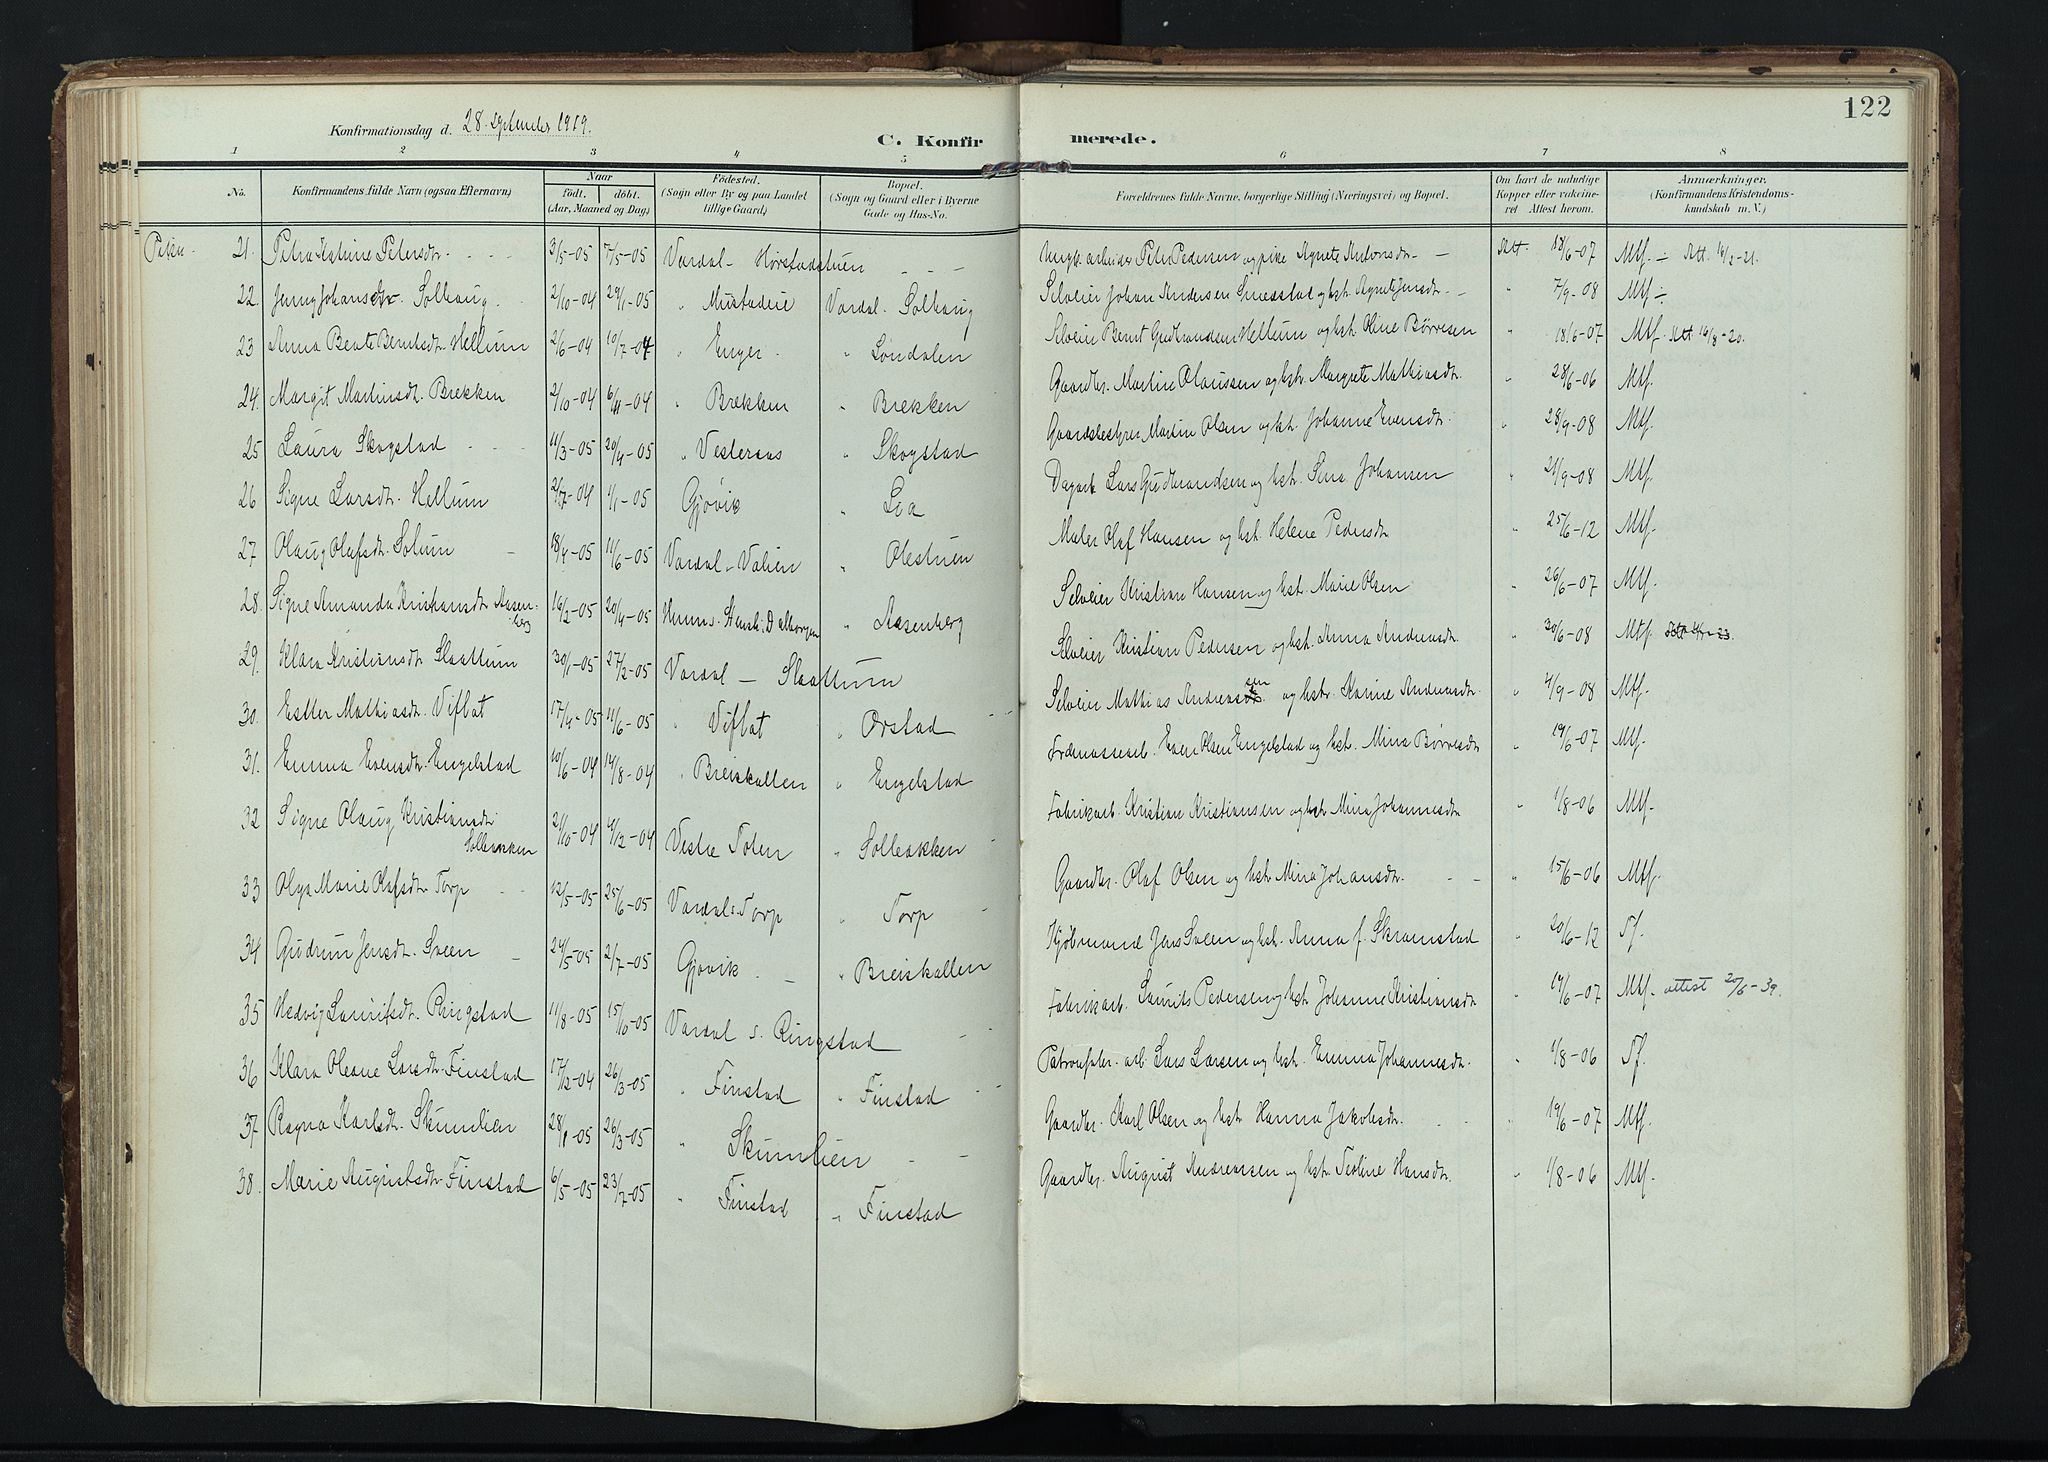 122
Konfirmationsdag d. 28. september 1919.
C. Konfirmerede.
1 2 3 4 5 6 7 8
No. Konfirmandens fulde Navn (ogsaa Efternavn) Naar født. døbt. (Aar, Maaned og Dag) Fødested. (Sogn eller By og paa Landet tillige Gaard) Bopæl. (Sogn og Gaard eller i Byerne Gade og Hus-No. Forældrenes fulde Navne, borgerlige Stilling (Næringsvei) og Bopæl. Om havt de naturlige Kopper eller vakcineret Attest herom. Anmærkninger. (Konfirmandens Kristendomskundskab m. V.)
Piker. 21. Petra Katrine Petersdr. 3/5-05 7/5-05 Vardal - Hørstadstuen Ungk. arbeider Peter Pedersen og pike Agnete Antonsdr. Att. 18/6-07 Mtf. Att. 16/2-21.
22. Jenny Johansdr. Solhaug 2/10-04 29/1-05 " Mustadeie Vardal. Solhaug Selveier Johan Andersen Smestad og hstr. Agnete Jensdr. " 7/9-08 Mtf
23 Anna Beate Berntsdr. Hellum 2/6-04 10/7-04 " Enger. " Løndalen Selveier Bernt Gudbrandsen Hellum og hstr. Oline Børresen " 18/6-07 Mtf. Att 16/8-20.
24. Margit Martinsdr. Brekken 2/10-04 6/11-04 " Brekken " Brekken Gaardbr. Martin Olaussen og hstr. Margrete Mathiasdr. " 28/6-06 Mtf.
25 Laura Skogstad 11/3-05 20/4-05 " Vesteraas " Skogstad Gaardsbestyrer Martin Olsen og hstr. Johanne Evensdr. " 28/9-08 Mtf.
26 Signe Larsdr. Hellum 2/7-04 1/1-05 Gjøvik " Loa Dagarb. Lars Gudbrandsen og hstr. Sina Johansen " 21/9-08 Mtf.
27 Olaug Olafsdr. Solum 18/4-05 11/6-05 Vardal - Valien " Olestuen Maler Olaf Hansen og hstr. Helene Pedersdr " 25/6-12 Mtf.
28. Signe Amanda Kristiansdr Aasenberg 16/2-05 20/4-05 " Aasenberg Selveier Kristian Hansen og hstr. Marie Olsen " 26/6-07 Mtf.
29. Klara Kristiansdr Slaattum 30/1-05 27/2-05 Vardal - Slaattum Selveier Kristian Pedersen og hstr. Anna Andersdr. " 30/6-08 Mtf.
30. Ester Mathiasdr. Viflat 17/4-05 11/6-05 " Viflat " Ørstad Selveier Mathias Andreassen og hstr. Karine Andersdr. " 4/9-08 Mtf.
31. Emma Evensdr. Engelstad 10/6-04 14/8-04 " Breiskallen " Engelstad Even Olsen Engelstad og hstr. Mina Børresdr " 19/6-07 Mtf.
32 Signe Olaug Kristiansdr. Sollbakken 21/10-04 4/12-04 Vestre Toten " Sollbakken Fabrikarb. Kristian Kristiansen og hstr Mina Johannesdr " 1/8-06 Mtf.
33 Olga Marie Olafsdr Torp 12/5-05 25/6-05 Vardal s. Torp " Torp Gaardbr. Olaf Olsen og hstr. Mina Johansdr. " 15/6-06 Mtf.
34 Gudrun Jensdr. Sveen 24/5-05 2/7-05 Gjøvik. " Breiskallen Kjøbmand Jens Sveen og hstr. Anna f. Skramstad " 20/6-12 Sf.
35 Hedvig Lauritsdr. Ringstad 11/8-05 15/10-05 Vardal s. Ringstad Fabrikarb. Laurits Pedersen og hstr Johanne Kristiansdr " 19/6-07 Mtf. attest 20/6-39.
36 Klara Oleane Larsdr Finstad 17/12-04 26/3-05 " Finstad " Finstad arb. Lars Larsen og hstr. Emma Johannesdr. " 1/8-06 Sf.
37 Ragna Karlsdr. Skumlien 28/1-05 26/3-05 " Skumlien Gaardbr. Karl Olsen og hstr Hanna Jakobsdr. " 19/6-07 Mtf.
38. Marie Augustsdr Finstad 6/5-05 23/7-05 " Finstad " Finstad Gaardbr. August Andreassen og hstr Teoline Hansdr. " 1/8-06 Mtf.